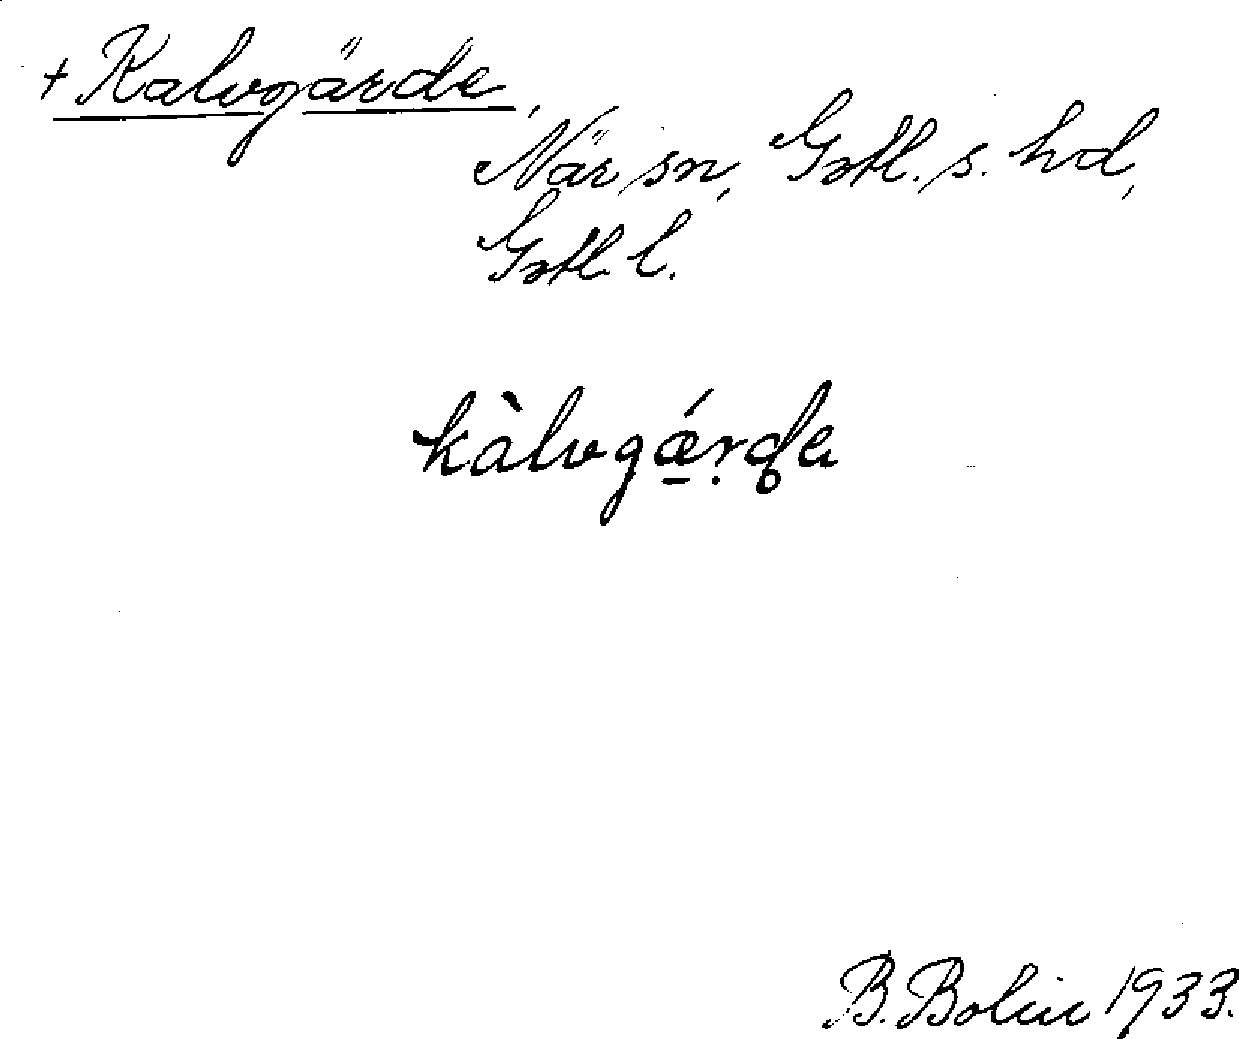 + Kalvgärde,
När sn, Gotl. s. hd,
Gotl. l.
kàlvgǽ̱ṛde
B. Bolin 1933.